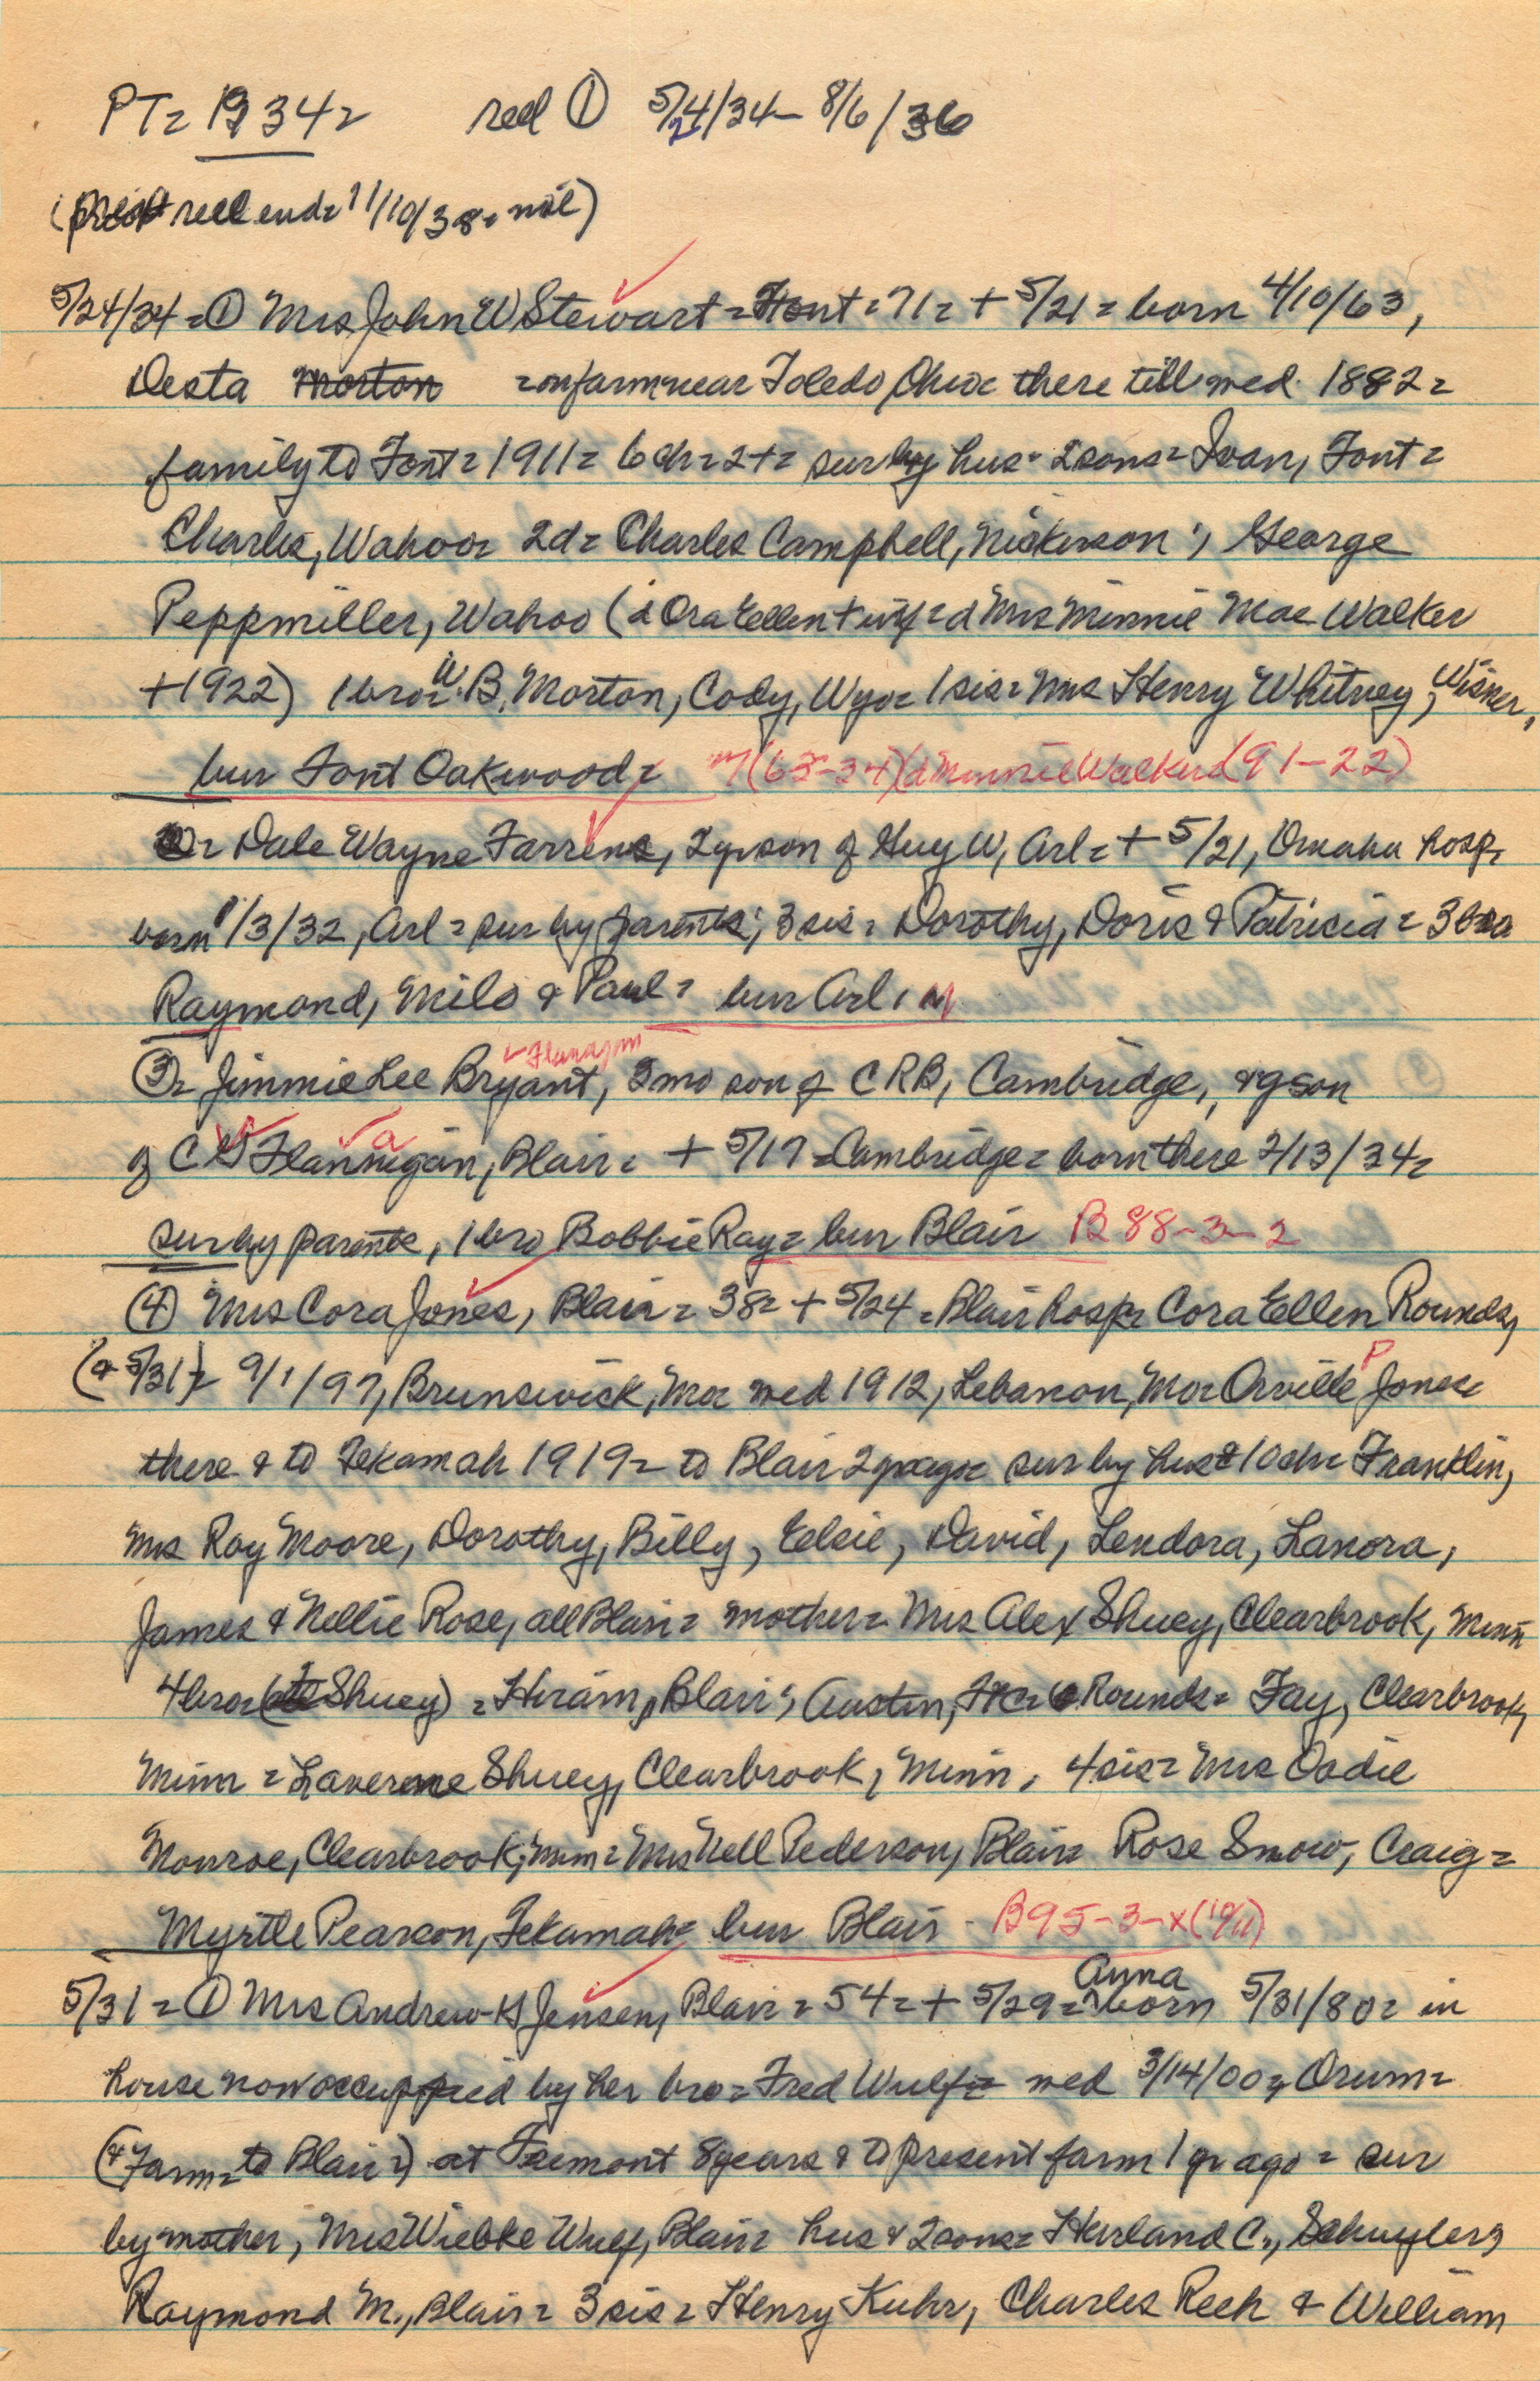 PT= 1934= reel ① 5/24/34- 8/6/36
( reel end= 11/10/38= nil)
5/24/34=① Mrs John W Stewart= Font=71= + 5/21= born 4/10/63,
Desta Morton =on farm near Toledo, Ohio= there till med 1882=
family to Font=1911= 6 ch=2+= sur by hus= 2 sons= Ivan, Font=
Charles, Wahoo= 2d= Charles Campbell, Nickerson; George
Peppmiller, Wahoo (d Ora Ellen + inf= d Mrs Minnie Mae Walker
+1922) 1 bro= W.B. Morton, Cody, Wyo= 1 sis= Mrs Henry Whitney, Wisner,
bur Font Oakwood= (63-34)(d Minnie Walker (91-22)
②= Dale Wayne Farrens, 2yr son of Guy W, Arl= + 5/21, Omaha hosp,
born 1/3/32, Arl= sur by parents; 3 sis= Dorothy, Doris & Patricia= 3 bro
Raymond, Milo & Paul= bur Arl= M
Flanagan
③= Jimmie Lee Bryant, 3 mo son of CRB, Cambridge, & g son
of C Flannigan, a Blair= + 5/17= Cambridge= born there 2/13/34=
sur by parents, 1 bro Bobbie Ray= bur Blair B 88-3-2
④ Mrs Cora Jones, Blair= 38= + 5/24= Blair hosp= Cora Ellen Rounds,
(& 5/31)= 9/1/97, Brunswick, Mo= med 1912, Lebanon, Mo= Orville P Jones=
there & to Tekamah 1919= to Blair 2 yr ago= sur by hus & 10 ch= Franklin,
Mrs Ray Moore, Dorothy, Billy, Elsie, David, Lendora, Lanora,
James & Nellie Rose, all Blair= mother= Mrs Alex Shuey, Clearbrook, Minn
4 bro= ( Shuey) = Hiram, Blair; Austin, Rounds= Fay, Clearbrook,
Minn= Laverene Shuey, Clearbrook, Minn, 4 sis= Mrs Osdie
Monroe, Clearbrook, Minn= Mrs Nell Pederson, Blair= Rose Snow, Craig=
Myrtle Pearson, Tekamah= bur Blair - B 95-3-x (10/11)
5/31= ① Mrs Andrew H Jensen, Blair= 54= + 5/29= Anna born 5/31/80= in
house now occuppied by her bro= Fred Wulf= med 3/14/00, Orum=
(& Farm= to Blair=) at Fremont 8 years & to present farm 1 yr ago= sur
by mother, Mrs Wiebke Wulf, Blair= hus & 2 sons= Harland C., Schuyler,
Raymond M., Blair= 3 sis= Henry Kuhr, Charles Reeh & William